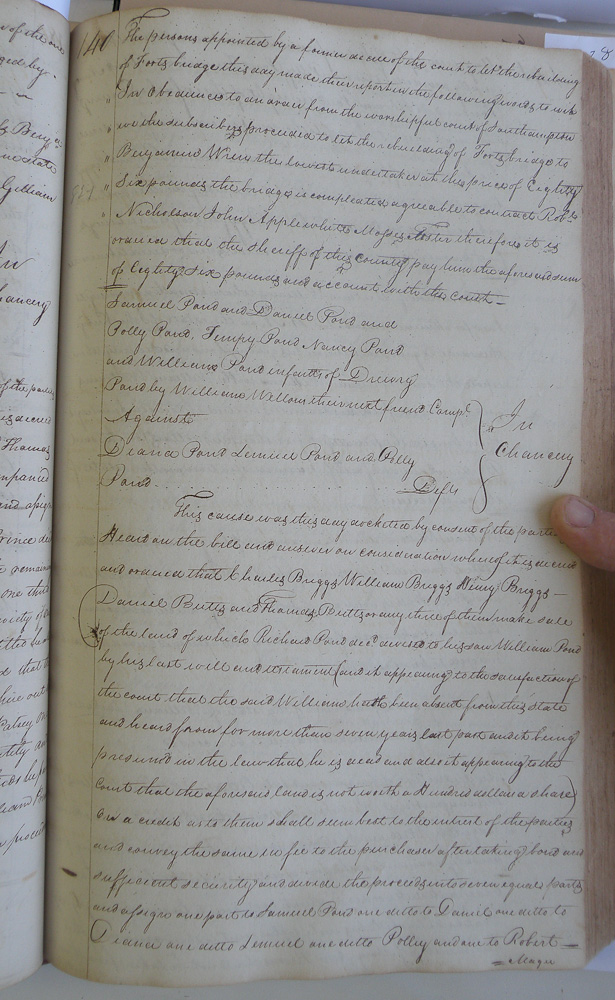 140 The persons appointed by a former decree of the court to let the rebuilding
of Forts bridge this day made their report in the following words to wit
" In obedience to an order from the worshipful court of Southampton
we the subscribers proceeded to let the rebuilding of Forts bridge to
" Benjamin Wren the lowest undertaker at the price of Eighty
" Six pounds, the bridge is compleated agreeable to contract Robt.
" Nicholson John Applewhite Moses Foster therefore it is
ordered that the Sheriff of this county pay him the aforesaid sum
of Eighty Six pounds and account with the Court —
Samuel Pond and Daniel Pond and
Polly Pond, Tempy Pond Nancy Pond
and William Pond infants of Drewry
Pond by William their next friend Compt.
Against
Diana Pond Lemuel Pond and Polly
Pond . . . . . . . . . . Defts
In
Chancery
This cause was this day docketed by consent of the parties
Heard on the bill and answer on consideration whereof it is decreed
and ordered that Charles Briggs William Briggs Henry Briggs —
Daniel Butts and Thomas Butts or any three of them make sale
of the land of which Richard Pond decd. devised to his son William Pond
by his last will and testament (and it appearing to the satisfaction of
the court that the said William hath been absent from this state
and heard from for more than seven years last past and it being
presumed in the law that he is dead and also it appearing to the
Court that the aforesaid land is not worth a Hundred dollars a share)
on a credit as to them shall seem best to the interest of the parties
and convey the same in fee to the purchaser after taking bond and
sufficient security and divide the proceeds into seven equal parts
and assign one part to Samuel Pond one ditto to Daniel one ditto to
Diana one ditto Lemuel one ditto Polley and one to Robert —